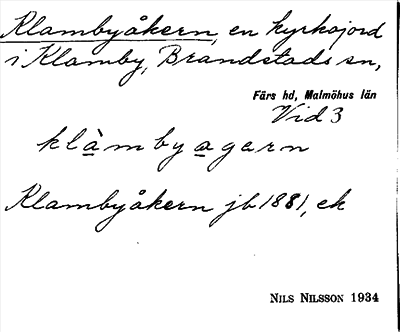 Klambyåkern, en kyrkojord
i Klamby, Brandstads sn,
Färs hd, Malmöhus län
Vid 3
klàmbyagarn
Klambyåkern jb 1881, ek
NILS NILSSON 1934